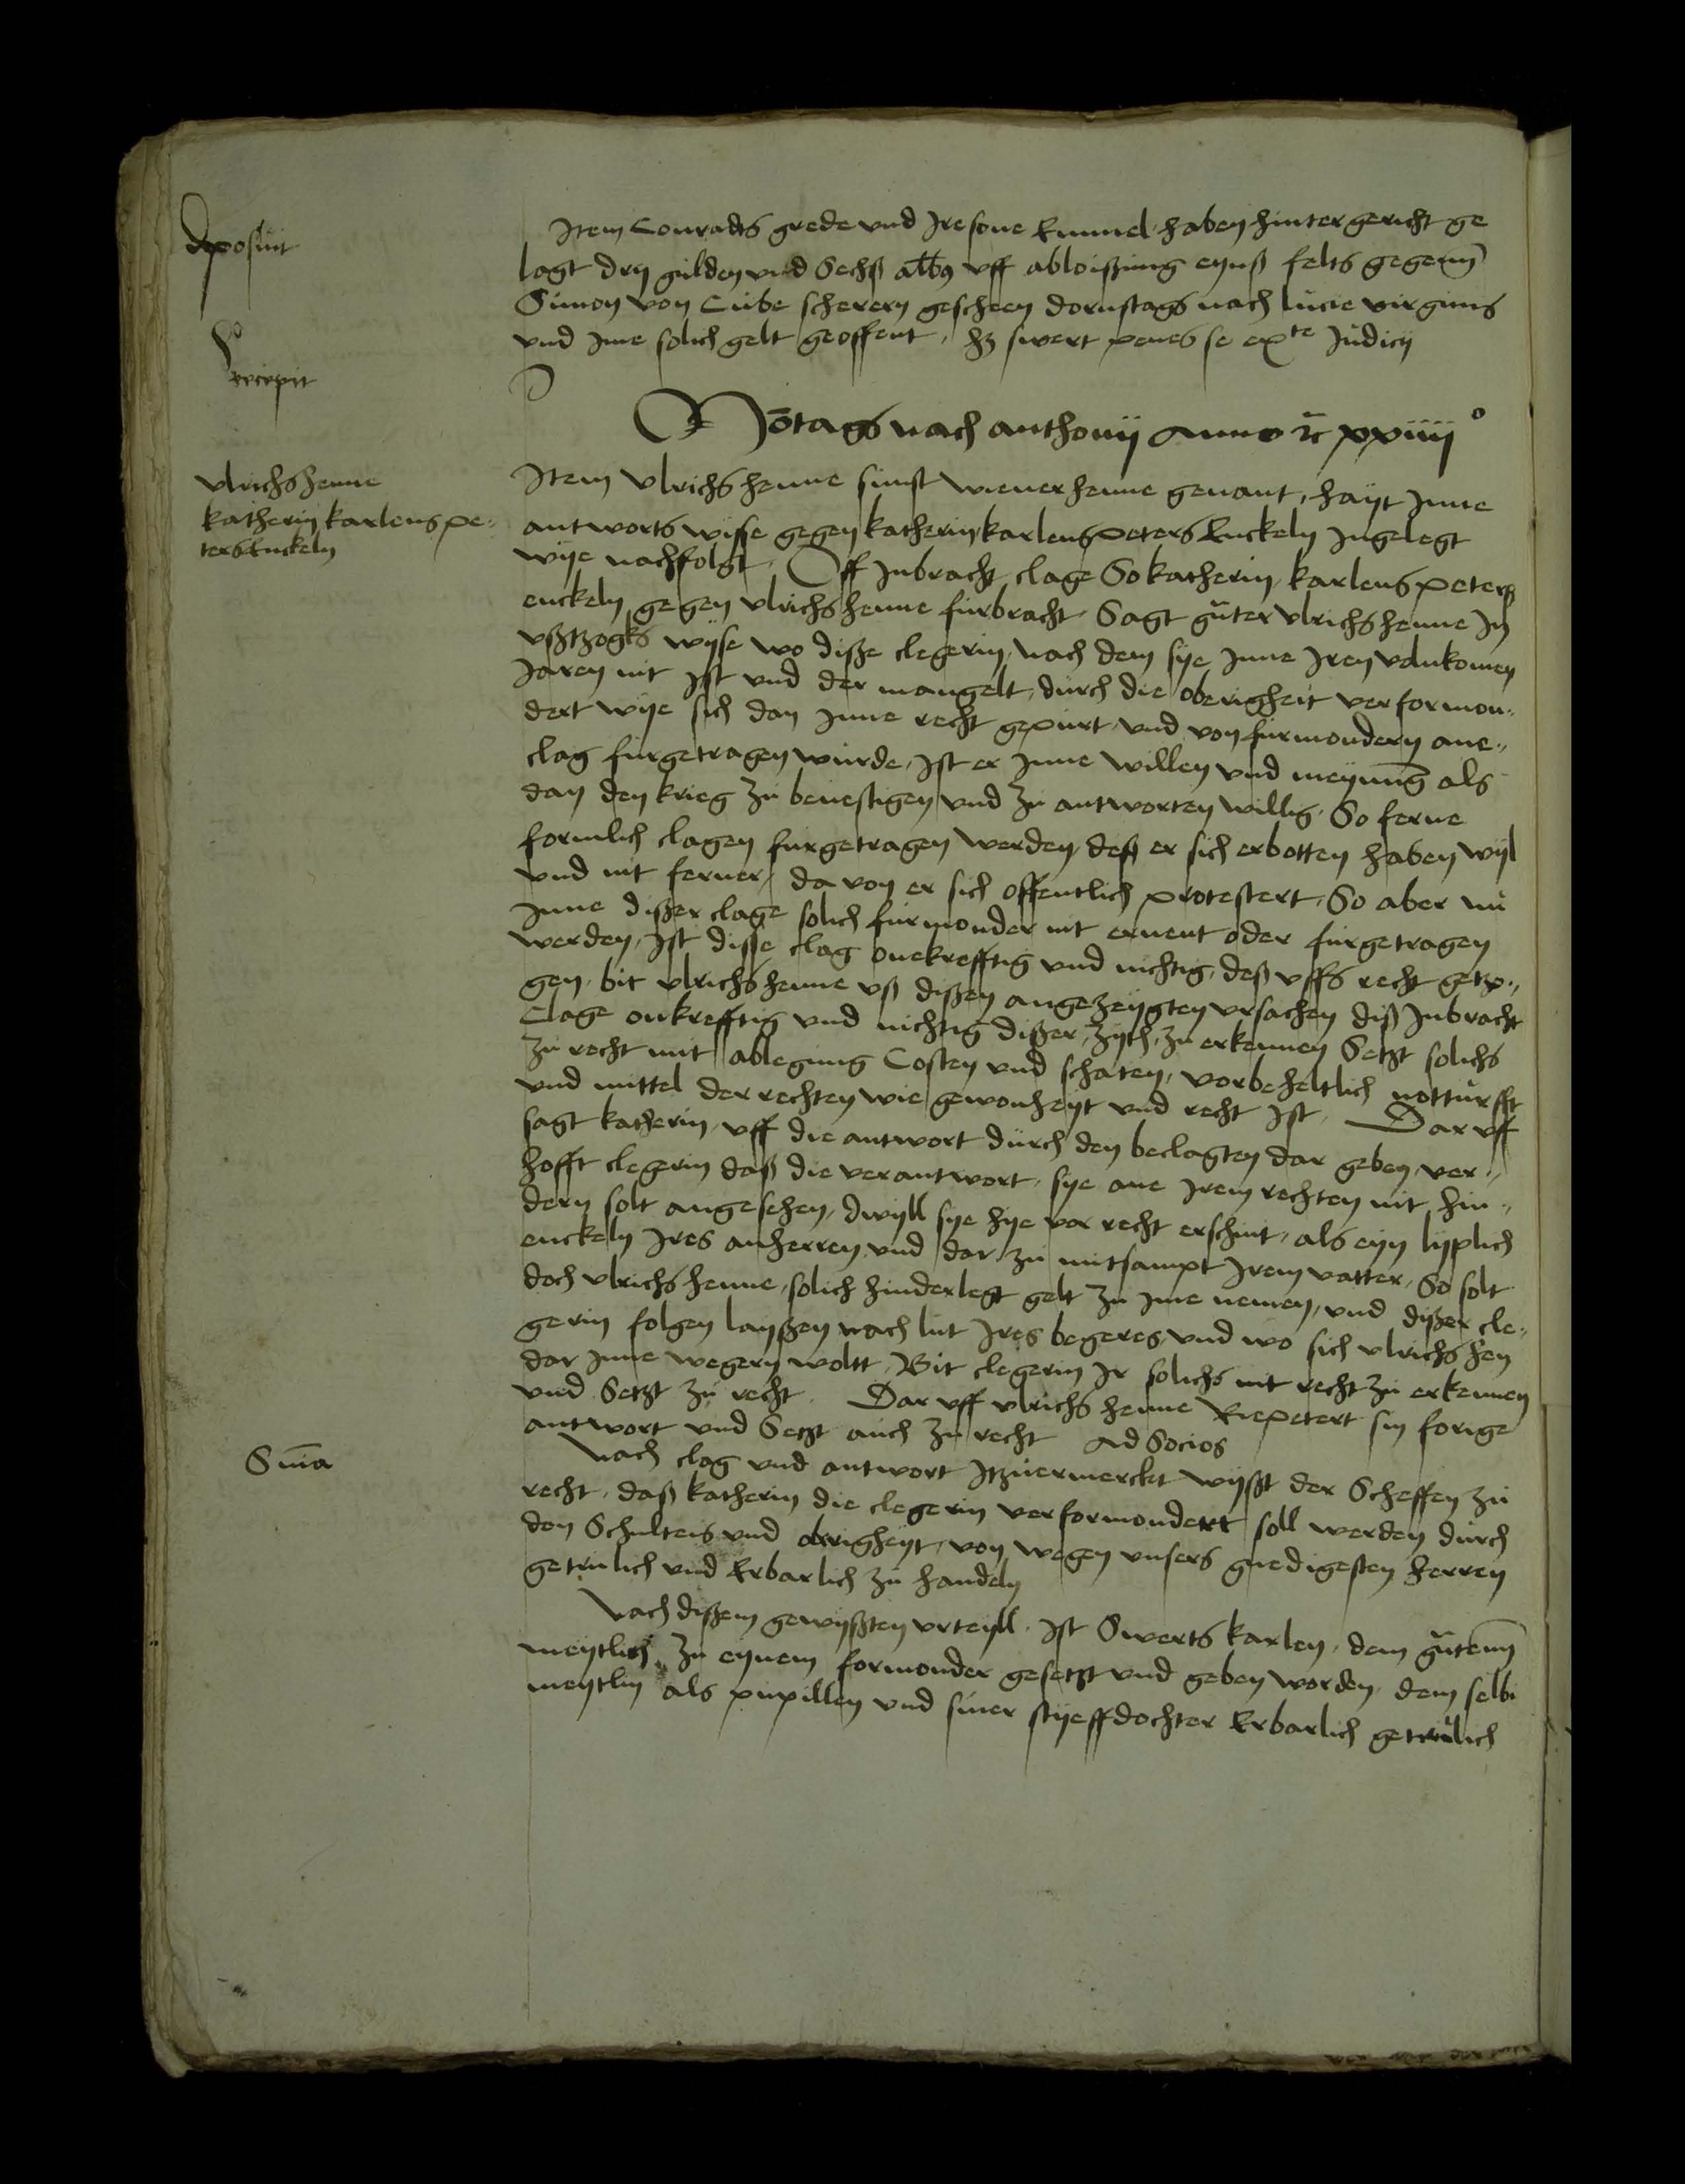 deposuit
Item Conradts grede vnd Ire sone Emmel haben hinter gericht ge
lagt dry gulden vnd Sechß albus vff abloißung eynß felts gegenn
Simon von Cube scherern gescheen dornstags nach lucie virginis
vnd Ime solich gelt geoffent, hz swert penes se ex parte Judicij
recepit
Motags nach anthonij anno rc xxiiij°
vlrichs henne
katherin karlens pe-
ters Enckeln
Item vlrichs henne sunst wiener henne genant, hayt Inne
antworts wisse gegen katherin karlens peters Enckeln Ingelegt
wije nachfolgt, Vff Inbracht clage So katherin, karlens peters
enckeln gegen vlrichs henne furbracht, Sagt guter vlrichs henne In
vßtzogks wyse wo disze clegerin, nach dem sye Inne Iren volnkomen
Jaren nit Ist vnd der mangelt, durch die oberigheit verformon-
dert wije sich dan Inne recht gepurt vnd von furmondern ane-
clag furgetragen wurde, Ist er Inne willen vnd meynung als
dan den krieg zu beuestigen vnd zu antworten willig, So ferne
formlich clagen furgetragen werden, deß er sich erbotten haben wyl
vnd nit ferner, da von er sich offentlich protestert, So aber nu
Inne diszer clage solich furmonder nit ernent oder furgetragen
werden, Ist disse clag onekrefftig vnd nichtig, deß vffs recht getzo-
gen, bit vlrichs henne vß diszen angezeygten vrsachen diß Inbracht
Clage onkrefftig vnd nichtig diszer zyth, zu erkennen Setzt solichs
zu recht mit ablegung Costen vnd schaten, vorbeheltlich notturfft
vnd mittel der rechten wie gewonheyt vnd recht Ist, Dar vff
sagt katherin, vff die antwort durch den beclagten dar geben, ver-
hofft clegerin daß die verantwort, sye ane Irem rechten nit hin-
dern solt angesehen, dwyll sye hye vor recht erschint, als eyn lyplich
enckeln Ires anherren vnd dar zu mitsampt Irem vatter, So solt
doch vlrichs henne, solich hinderlegt gelt zu Ime nemen, vnd diszer cle-
gerin folgen layßen nach lut Ires begeres vnd wo sich vlrichs hen
dar Inne wegern woltt, Bit clegerin Ir solichs mit recht zu erkennen
vnd Setzt zu recht. Dar vff vlrichs henne Riepetert sin forige
antwort vnd Setzt auch zu recht Ad Socios
Snia
Nach clag vnd antwort Itzuermerckt wyßt der Scheffen zu
recht, daß katherin die clegerin verformondert soll werden durch
den Schulteis vnd obrigheyt, von wegen vnsers gnedigesten herren
getrulich vnd Erbarlich zu handeln
Nach diszem gewyßten vrteyll, Ist Swerts karlen, dem gutenn
meytlich, zu eynem formonder gesetzt vnd geben worden, dem selbi
meytlin als pupillen vnd siner styeffdochter Erbarlich getrulich